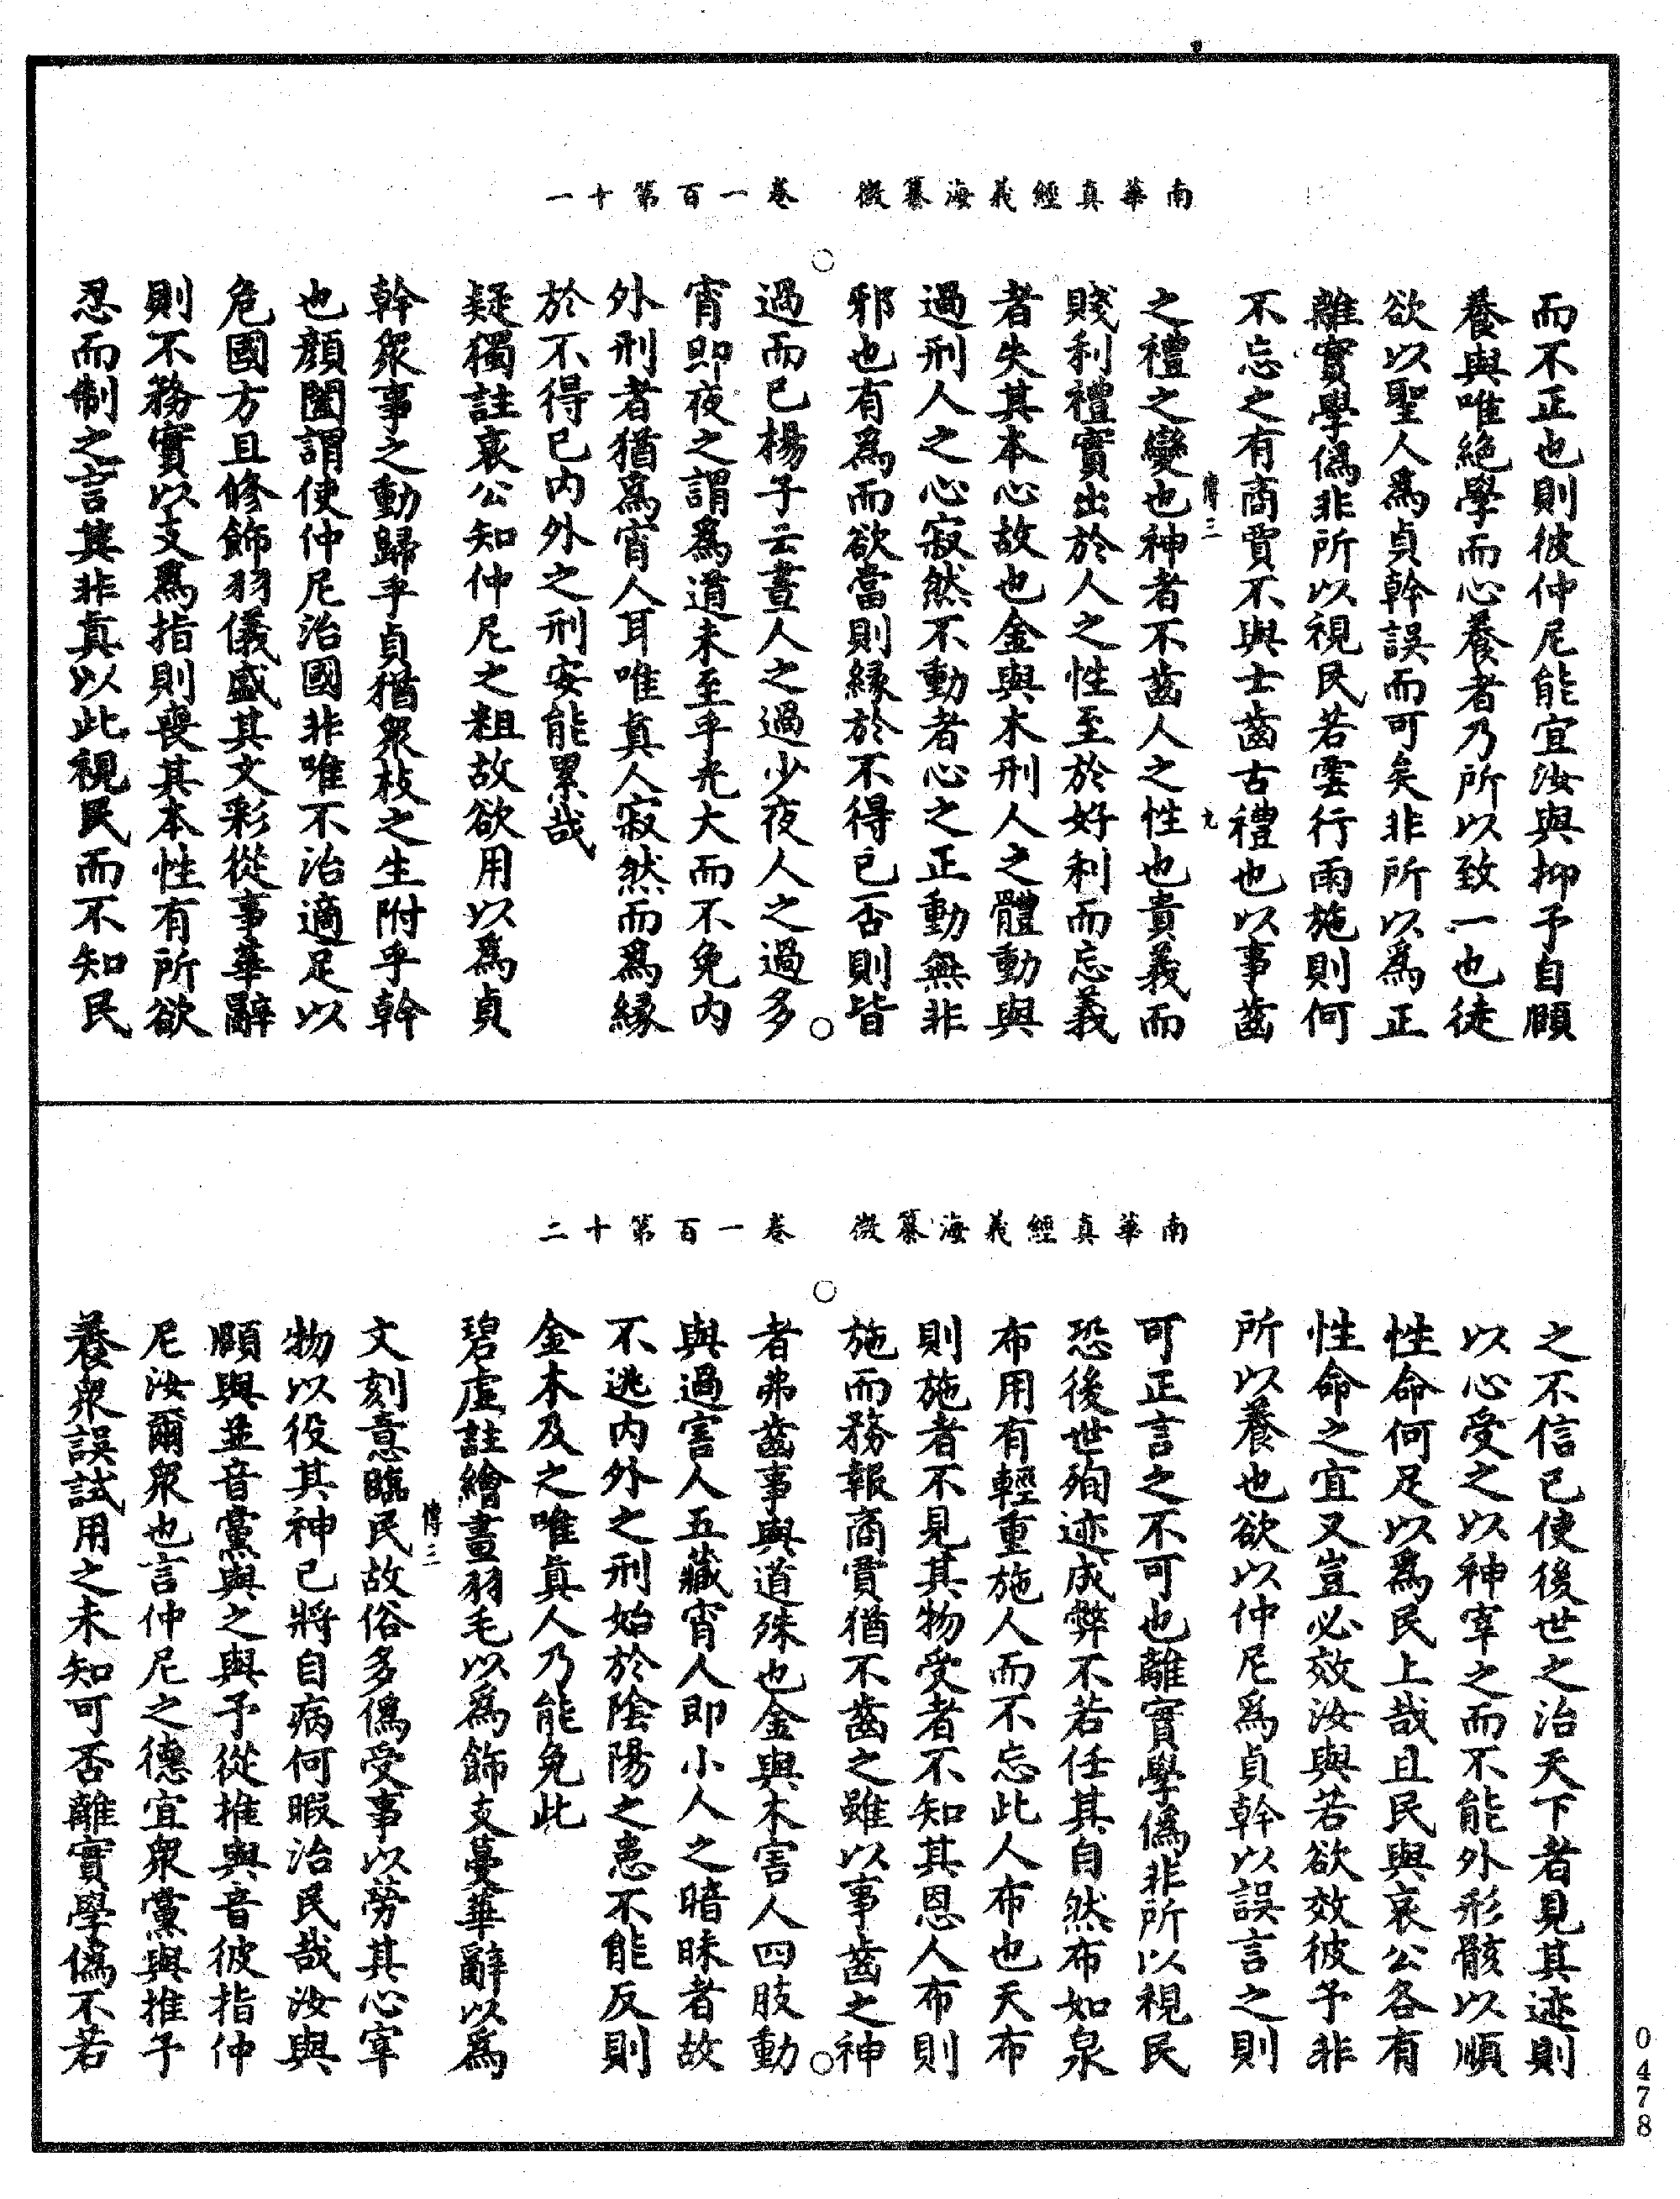 南華真經義海纂微　卷一百第十一
而不正也則彼仲尼能宜汝與抑予自頤
養與唯絕學而心養者乃所以致一也徒
欲以聖人爲貞幹誤而可矣非所以爲正
離實學僞非所以視民若雲行雨施則何
不忘之有商賈不與士齒古禮也以事齒
之禮之變也神者不齒人之性也貴義而
賤利禮實出於人之性至於好利而忘義
者失其本心故也金與木刑人之體動與
過刑人之心寂然不動者心之正動無非
邪也有爲而欲當則緣於不得已否則皆
過而已楊子云晝人之過少夜人之過多
宵即夜之謂爲道未至乎光大而不免內
外刑者猶爲宵人耳唯真人寂然而爲緣
於不得已內外之刑安能累哉
疑獨註哀公知仲尼之粗故欲用以爲貞
幹衆事之動歸乎貞猶衆枝之生附乎幹
也顏闔謂使仲尼治國非唯不治適足以
危國方且修飾羽儀盛其文彩從事華辭
則不務實以支爲指則喪其本性有所欲
忍而制之言冀非真以此視民而不知民
傳三
九
南華真經義海纂微　卷一百第十二
之不信已使後世之治天下者見其迹則
以心受之以神宰之而不能外形骸以順
性命何足以爲民上哉且民與哀公各有
性命之宜又豈必效汝與若欲效彼予非
所以養也欲以仲尼爲貞幹以誤言之則
可正言之不可也離實學僞非所以視民
恐後世殉迹成弊不若任其自然布如泉
布用有輕重施人而不忘此人布也天布
則施者不見其物受者不知其恩人布則
施而務報商賈猶不齒之雖以事齒之神
者弗齒事與道殊也金與木害人四肢動
與過害人五藏宵人即小人之暗昧者故
不逃內外之刑始於陰陽之患不能反則
金木及之唯真人乃能免此
碧虛註繪畫羽毛以爲飾支蔓華辭以爲
文刻意臨民故俗多僞受事以勞其心宰
物以役其神已將自病何暇治民哉汝與
頤與並音黨與之與予從推與音彼指仲
尼汝爾衆也言仲尼之德宜衆黨與推予
養衆誤試用之未知可否離實學僞不若
傳三
0478